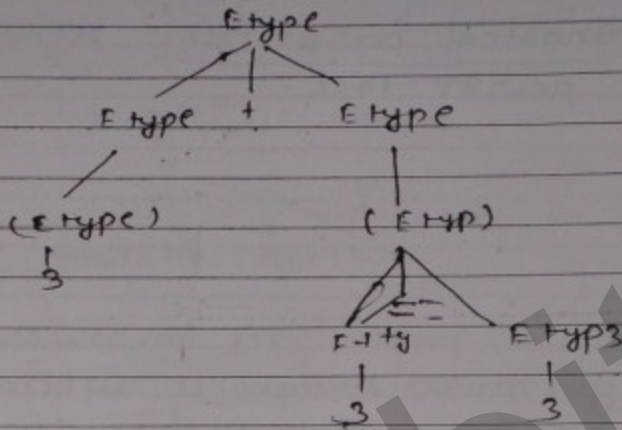 Etype
Etype + Etype
(Etype) (Etyp)
3
==
Etyp3
3 3